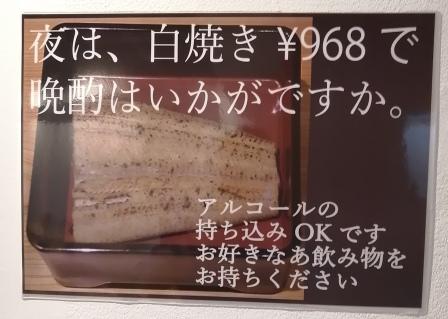 夜は、白焼き ¥968 で
晩酌はいかがですか。
アルコールの
持ち込み OK です
お好きなあ飲み物を
お持ちください